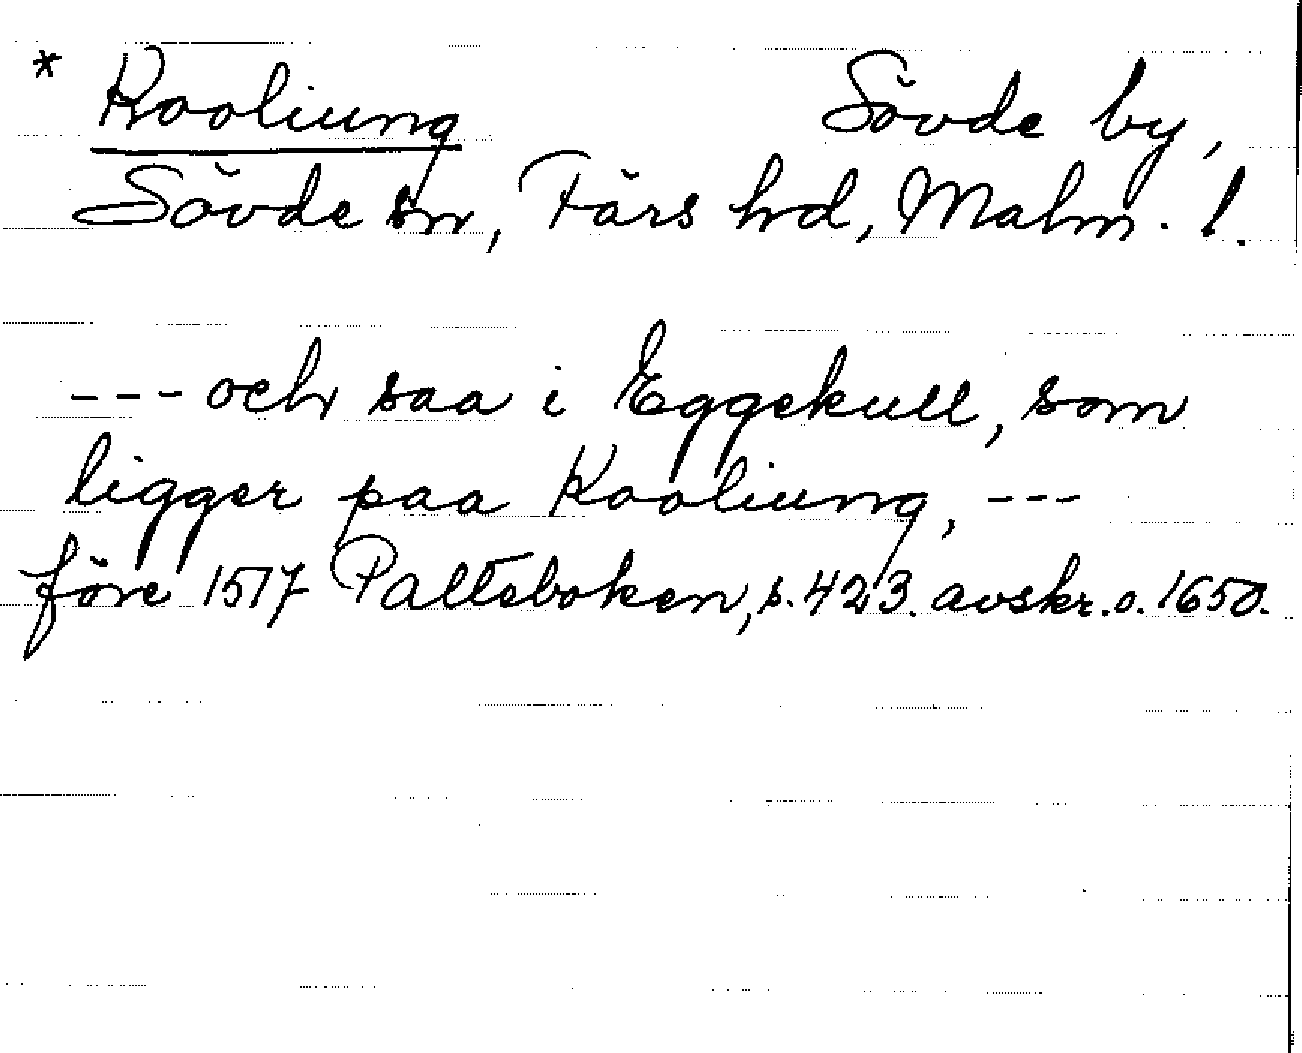 * Kooliung Sövde by,
Sövde sn, Färs hd, Malm. l.
--- och saa i Eggekull, som
ligger paa Kooliung, ---
före 1517 Palteboken, s. 423. avskr. o. 1650.